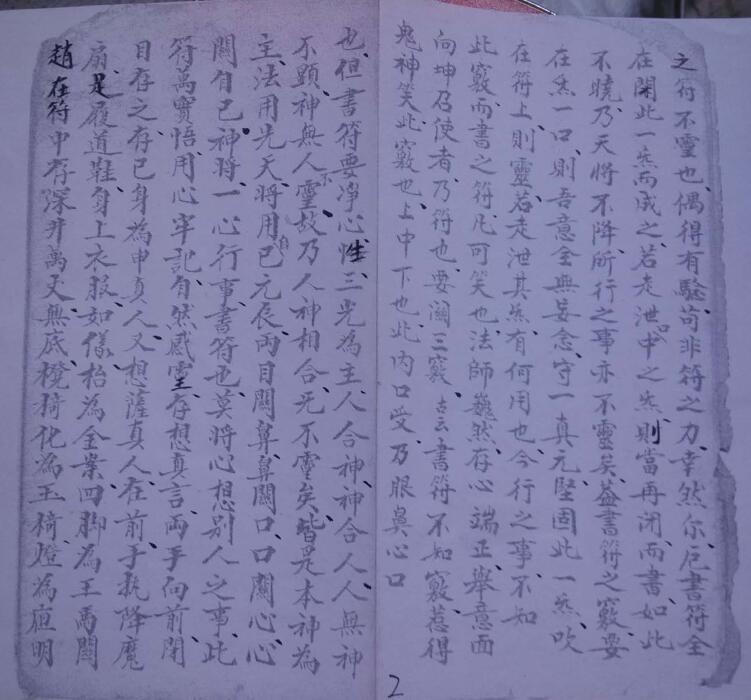 之符不靈也、偶得有騐、苟非符之力、幸然尔、凡書符全
在閉此一炁而成之、若走泄口中之炁、則當再閉、而書、如此
不曉、乃天將不降、所行之事、亦不靈矣、蓋書符之竅、要
在炁一口、則吾意全無妄念、守一真元、堅固此一炁、吹
在符上、則靈、若走泄其炁、有何用也、今行之事、不知
此竅、而書之符、凡可笑也、法師巍然、存心端正、舉意面
向坤召使者、乃符也、要闗三竅、古云書符不知竅、惹得
鬼神笑、此竅也、上中下也此内口受、乃眼鼻心口
也、但書符要净心性、三光為主、人合神、神合人、人無神
不顕、神無人不靈、故乃人神相合、无不靈矣、皆是本神為
主、法用先天、將用自己元辰、両目闗鼻、鼻闗口、口闗心、心
闗自己神將、一心行事、書符也、莫將心想別人之事、此
符萬寶悟、用心牢記、自然感霊、存想真言、両手向前、閉
目存之、存已身為申真人、又想薩真人、在前、手执降魔
扇、足履道鞋、身上衣服、如様、枱為全業、四脚為王馬闗
趙在符中、存深井萬丈、無底、櫈椅化為玉椅、燈為夜明
2